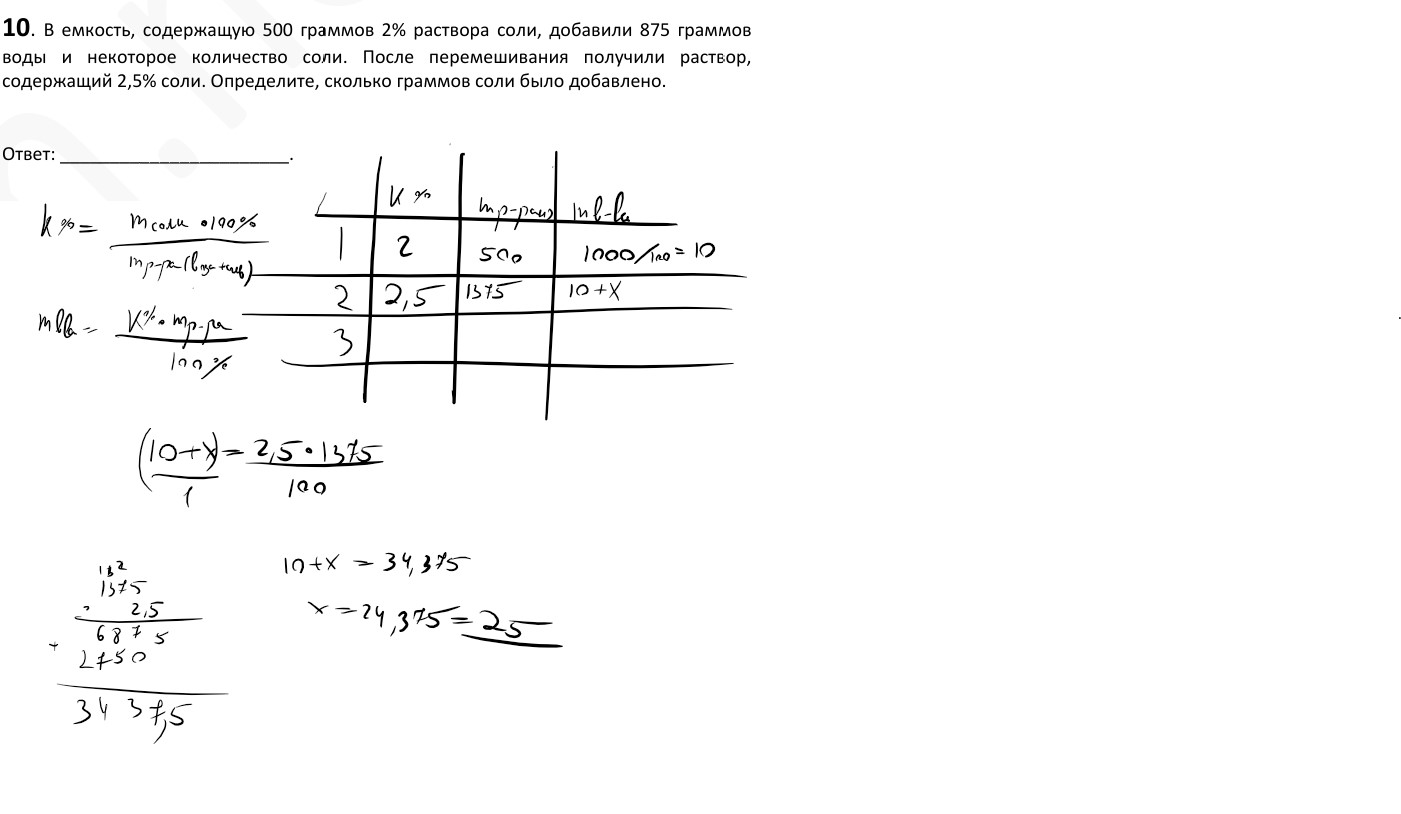 10. В емкость, содержащую 500 граммов 2% раствора соли, добавили 875 граммов
воды и некоторое количество соли. После перемешивания получили раствор,
содержащий 2,5% соли. Определите, сколько граммов соли было добавлено.
Ответ: ______________________.
K% mр-ра mв-ва
1 2 500 1000/100 = 10
2 2,5 1375 10+x
3
k% = mсоли • 100%
mр-ра
mв-ва = K% • mр-ра
100%
(10+x) = 2,5 • 1375
1 100
1375
2,5
6875
+ 2750
3437,5
10+x = 34,375
x = 24,375 = 25